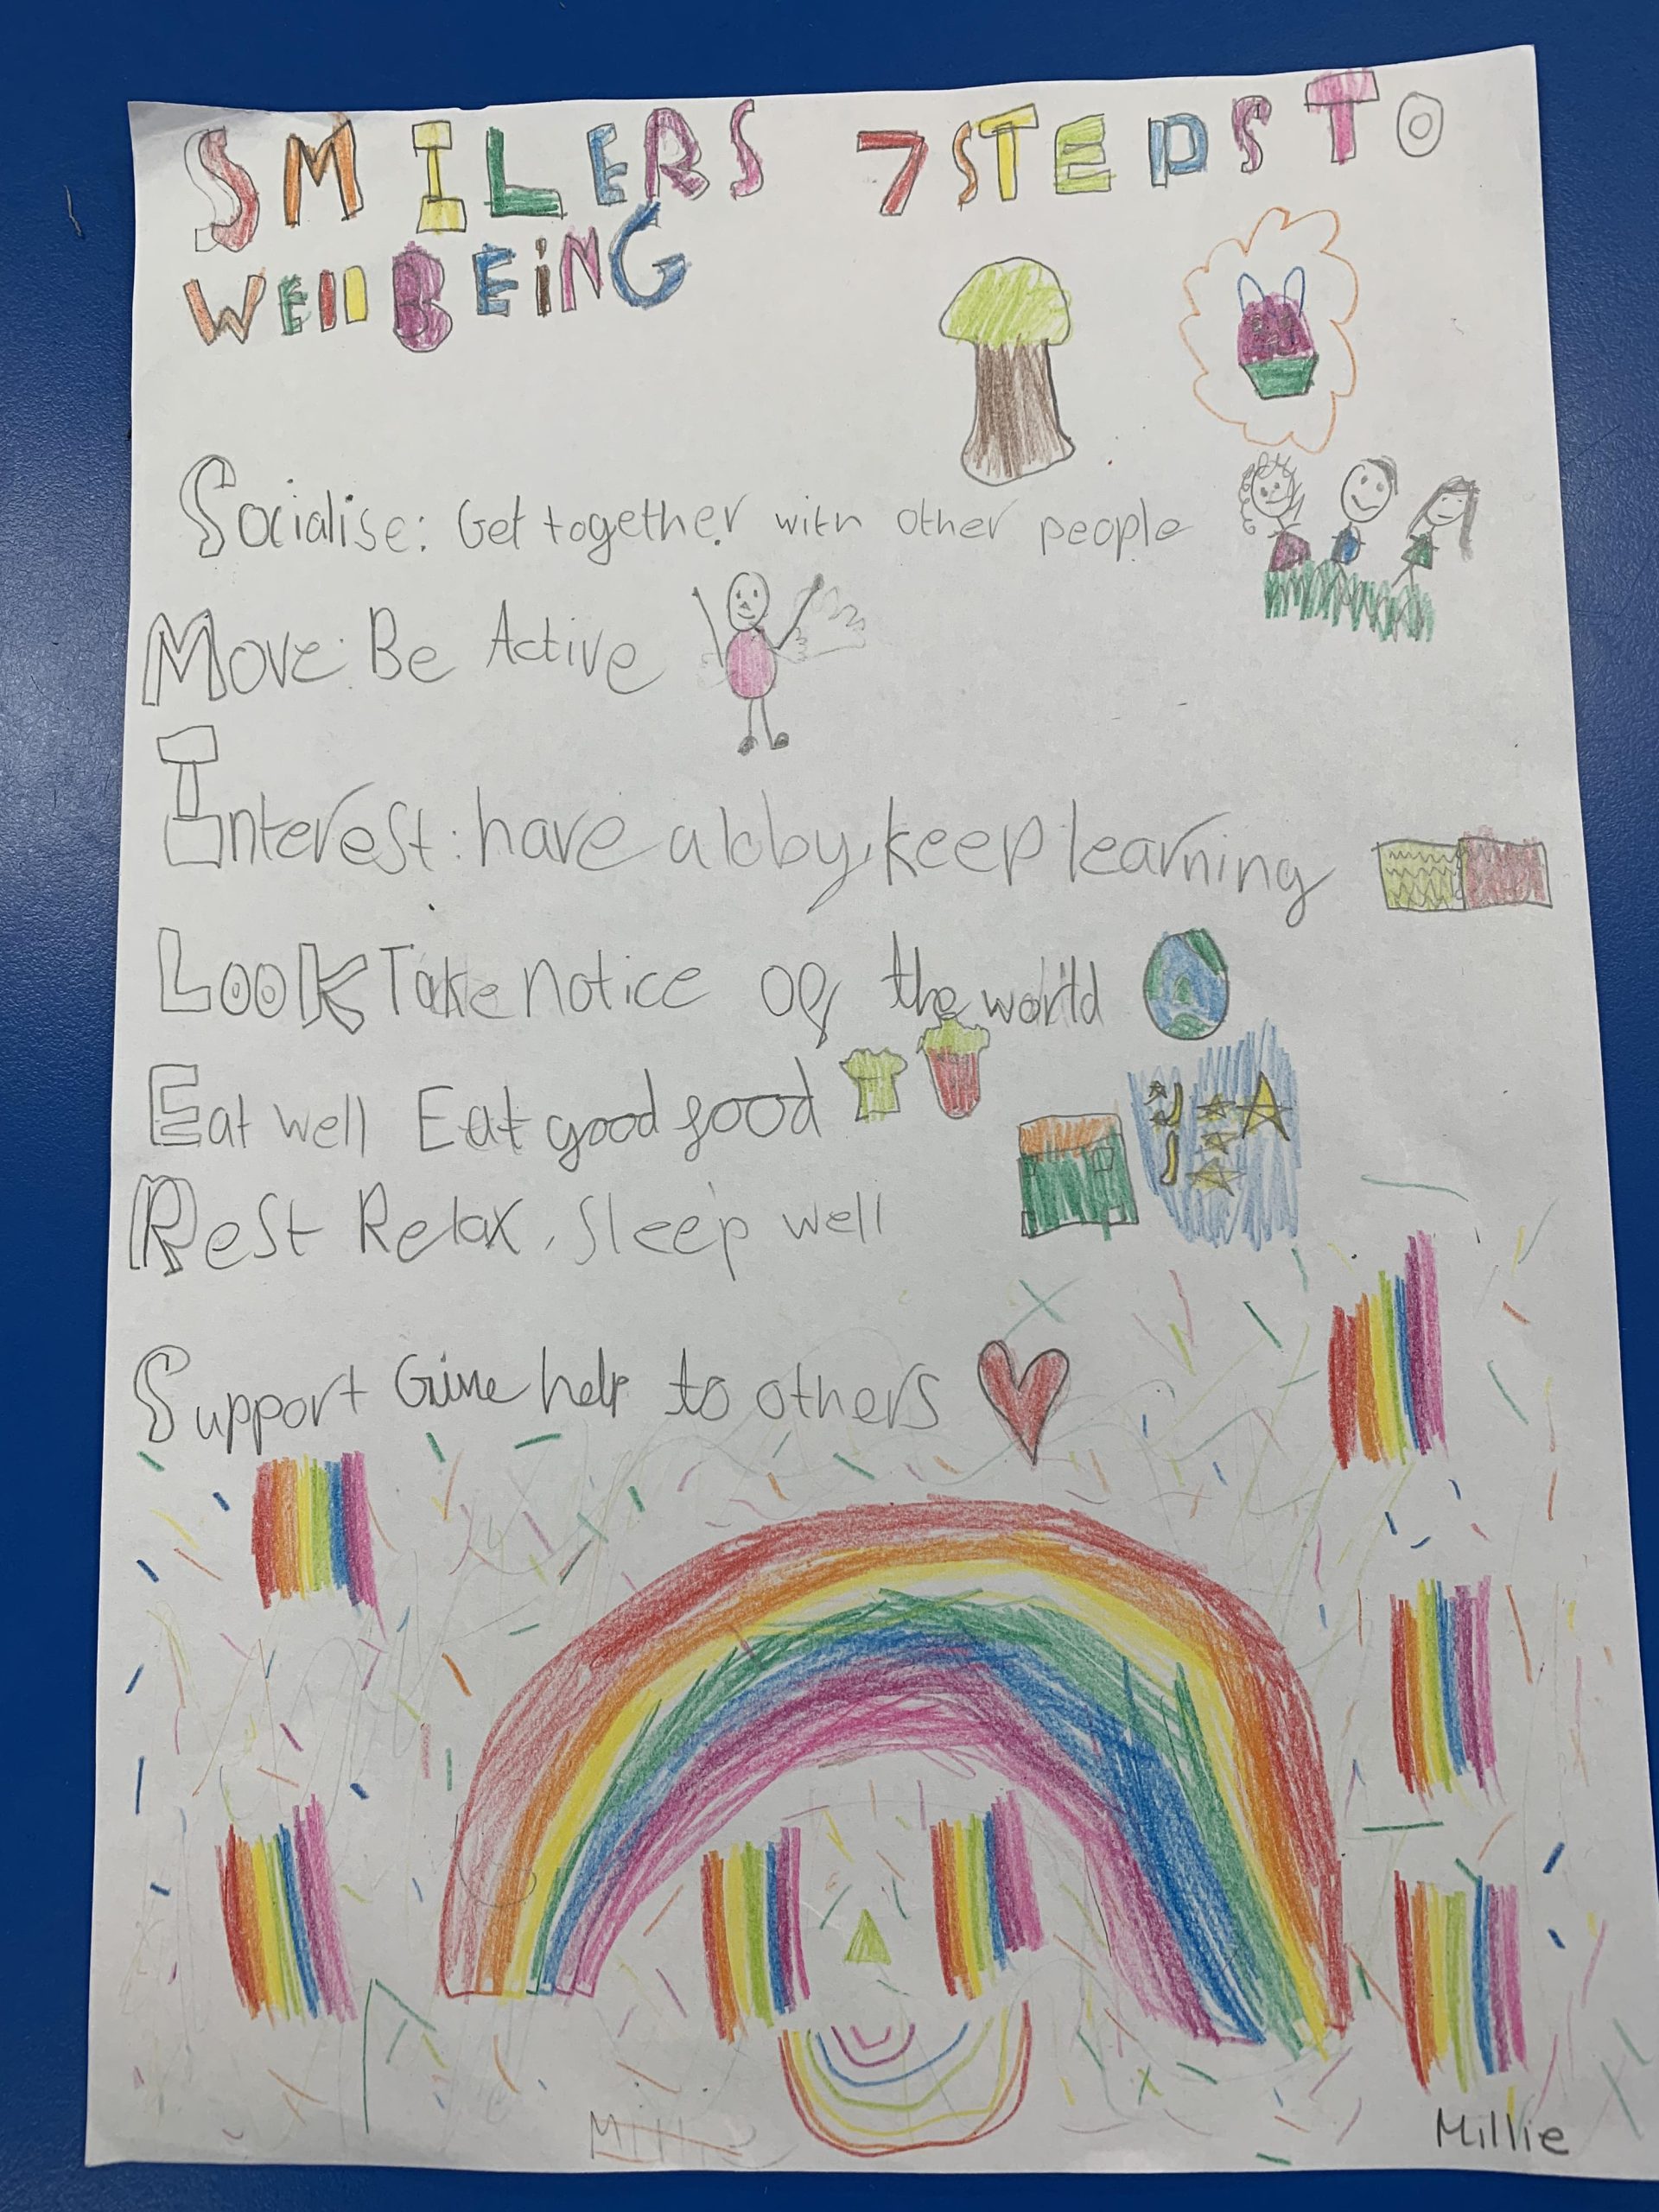 SMILERS 7 STEPS TO
WEllBEiNG
Socialise: Get together with other people
Move: Be Active
Interest: have a lobby, keep learning
LOOK Take notice of the world
Eat well Eat good food
Rest Relax, Sleep well
Support Give help to others
Mill
Millie